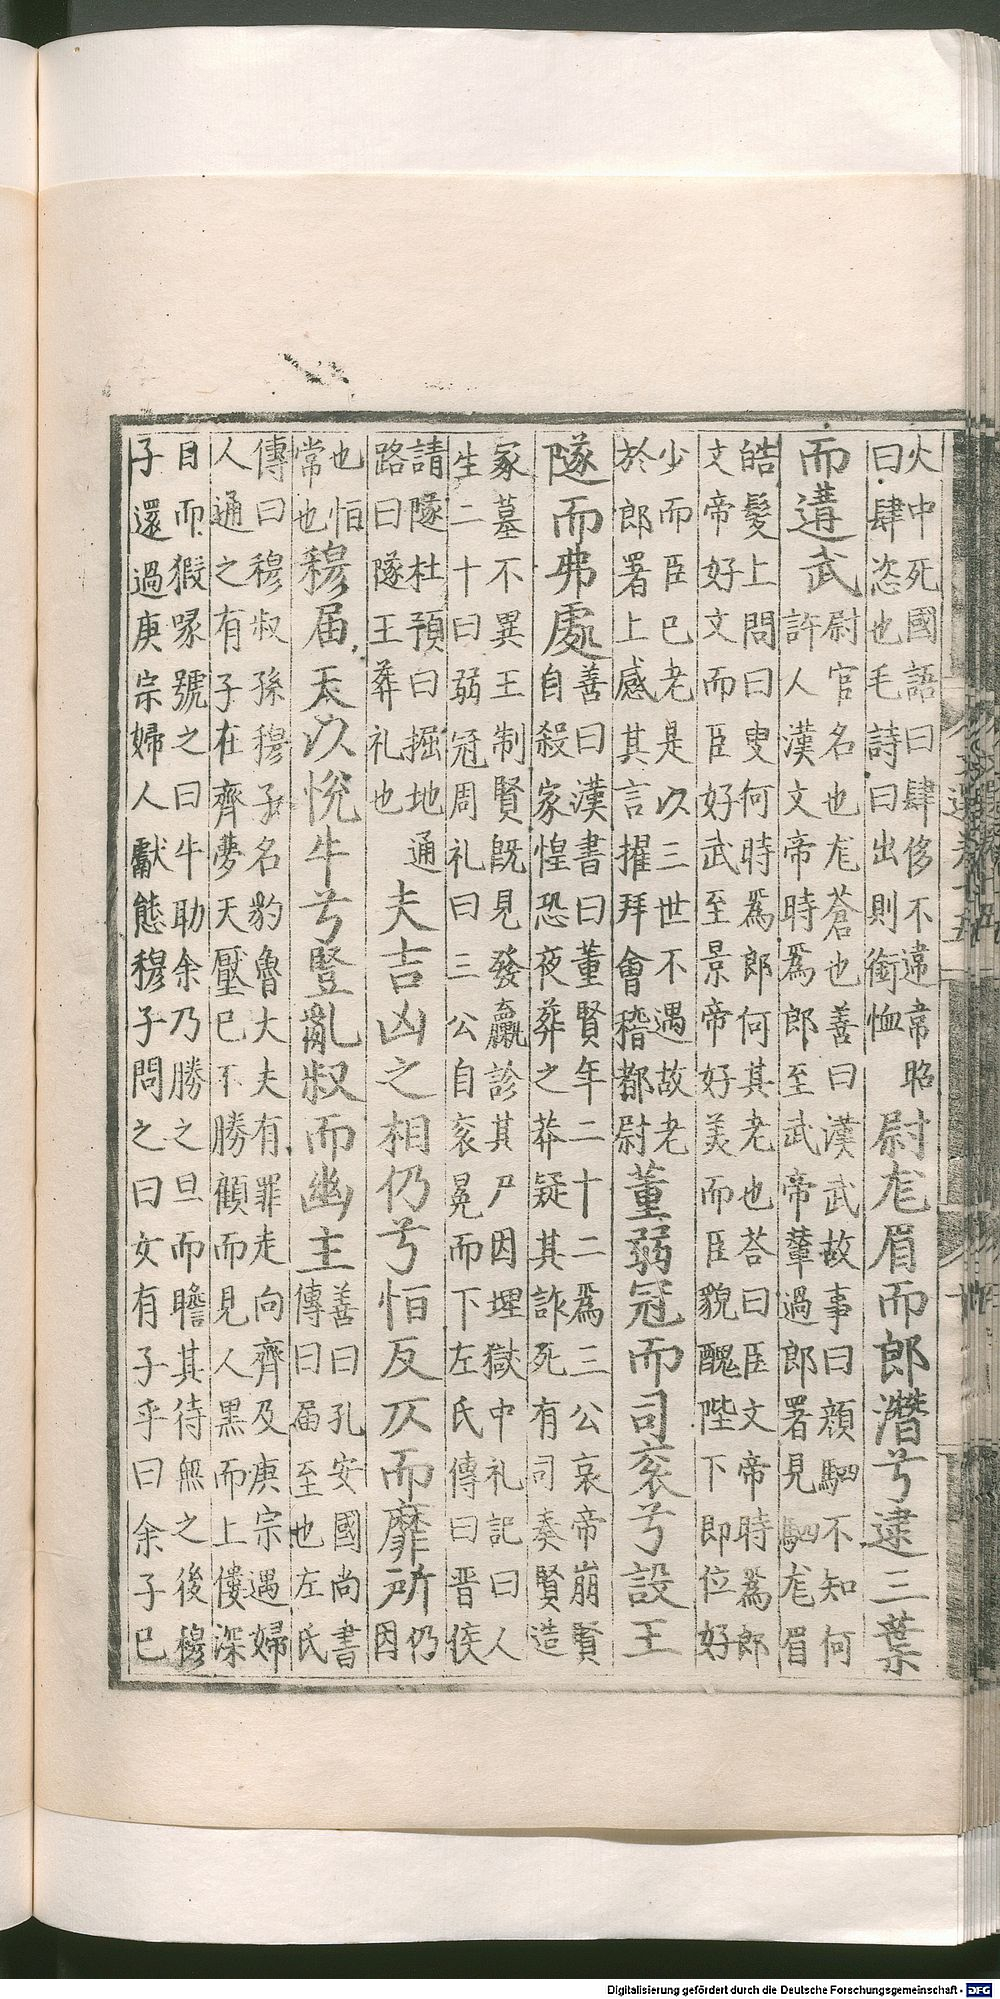 火中死國語曰肆侈不違常昭
曰肆恣也毛詩曰出則銜恤
尉尨眉而郎潛兮逮三葉
而遘武
尉官名也尨蒼也善曰漢武故事曰顏駟不知何
許人漢文帝時爲郎至武帝輦過郎署見駟尨眉
皓髮上問曰叟何時爲郎何其老也荅曰臣文帝時爲郎
文帝好文而臣好武至景帝好美而臣貌醜陛下即位好
少而臣已老是以三世不遇故老
於郎署上感其言擢拜會稽都尉
董弱冠而司衮兮設王
隧而弗處
善曰漢書曰董賢年二十二爲三公哀帝崩賢
自殺家惶恐夜葬之莽疑其詐死有司奏賢造
冢墓不異王制賢既見發羸診其尸因埋獄中礼記曰人
生二十曰弱冠周礼曰三公自衮冕而下左氏傳曰晉侯
請隧杜預曰掘地通
路曰隧王葬礼也
夫吉凶之相仍兮恒反仄而靡所
仍
因
也恒
常也
穆届天以悅牛兮豎亂叔而幽主
善曰孔安國尚書
傳曰届至也左氏
傳曰穆叔孫穆子名豹魯大夫有罪走向齊及庚宗遇婦
人通之有子在齊夢天壓已不勝顧而見人黑而上僂深
目而猳喙號之曰牛助余乃勝之旦而瞻其待無之後穆
子還過庚宗婦人獻態穆子問之曰女有子乎曰余子已
Digitalisierung gefördert durch die Deutsche Forschungsgemeinschaft - DFG